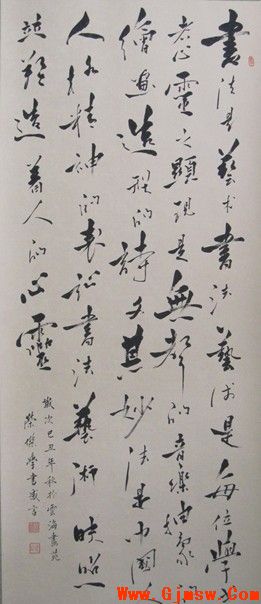 書法是藝术書法藝術是每位學書
者心靈之顯現是無聲的音樂抽象的
繪畫造型的詩文其妙法是中國人
人格精神的表 書法藝術映照
與塑造著人的心靈
歲次己丑年秋於雲海書苑
榮傑學書感言
www.Gjmsw.Com